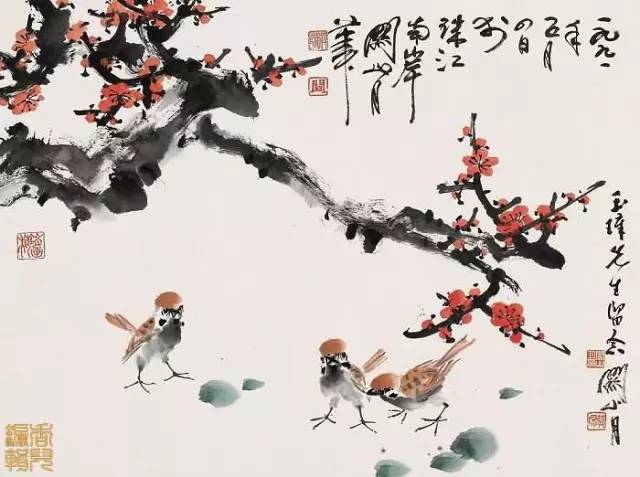 一九九一
年
五月
四日
於
珠江
南岸
關山月
筆
玉璋先生留念
關山月
編輯